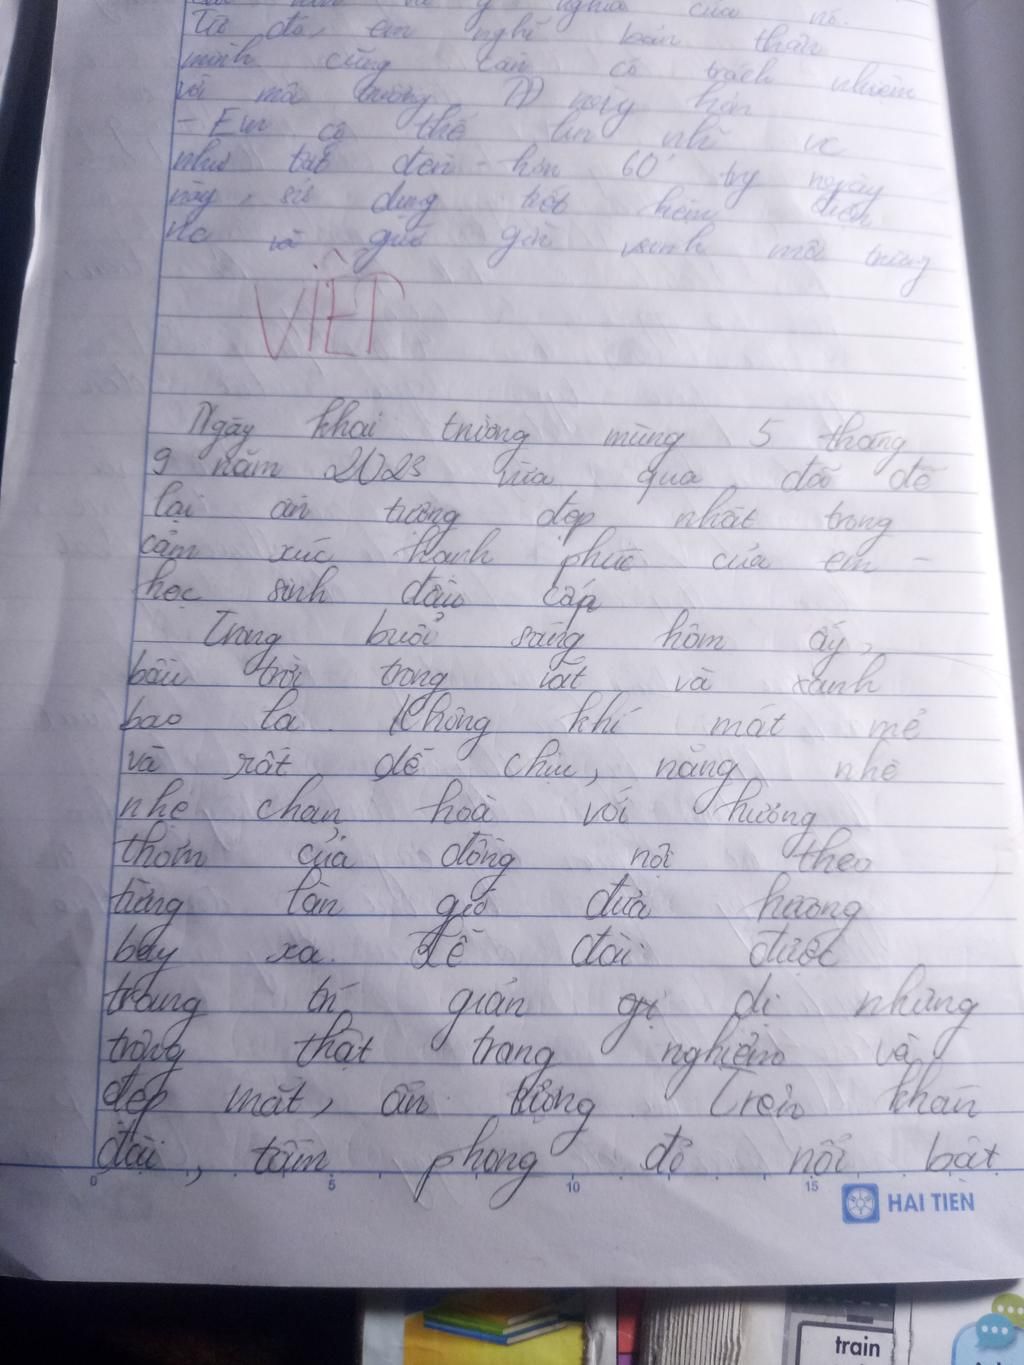 của nó.
Từ đó, em nghĩ bản thân
mình cũng cần có trách nhiệm
với môi trường hơn
- Em có thể làm
như tắt đèn hơn 60'
này, sử dụng tiết kiệm điện
nc và giữ gìn vsinh môi trường
VIẾT
Ngày khai trường mùng 5 tháng
9 năm 2023 vừa qua đã để
lại ấn tượng đẹp nhất trong
cảm xúc hạnh phúc của em -
học sinh đầu cấp
Trong buổi sáng hôm ấy,
bầu trời trong vắt và xanh
bao la. Không khí mát mẻ
và rất dễ chịu, nắng nhè
nhẹ chan hoà với hương
thơm của đồng nội theo
từng làn gió đưa hương
bay xa. Lễ đài được
trang trí giản gị dị nhưng
trông thật trang nghiêm và
đẹp mắt, ấn tượng. Trên khán
đài, tấm phong đỏ nổi bật
0 5 10 15
HAI TIEN
train